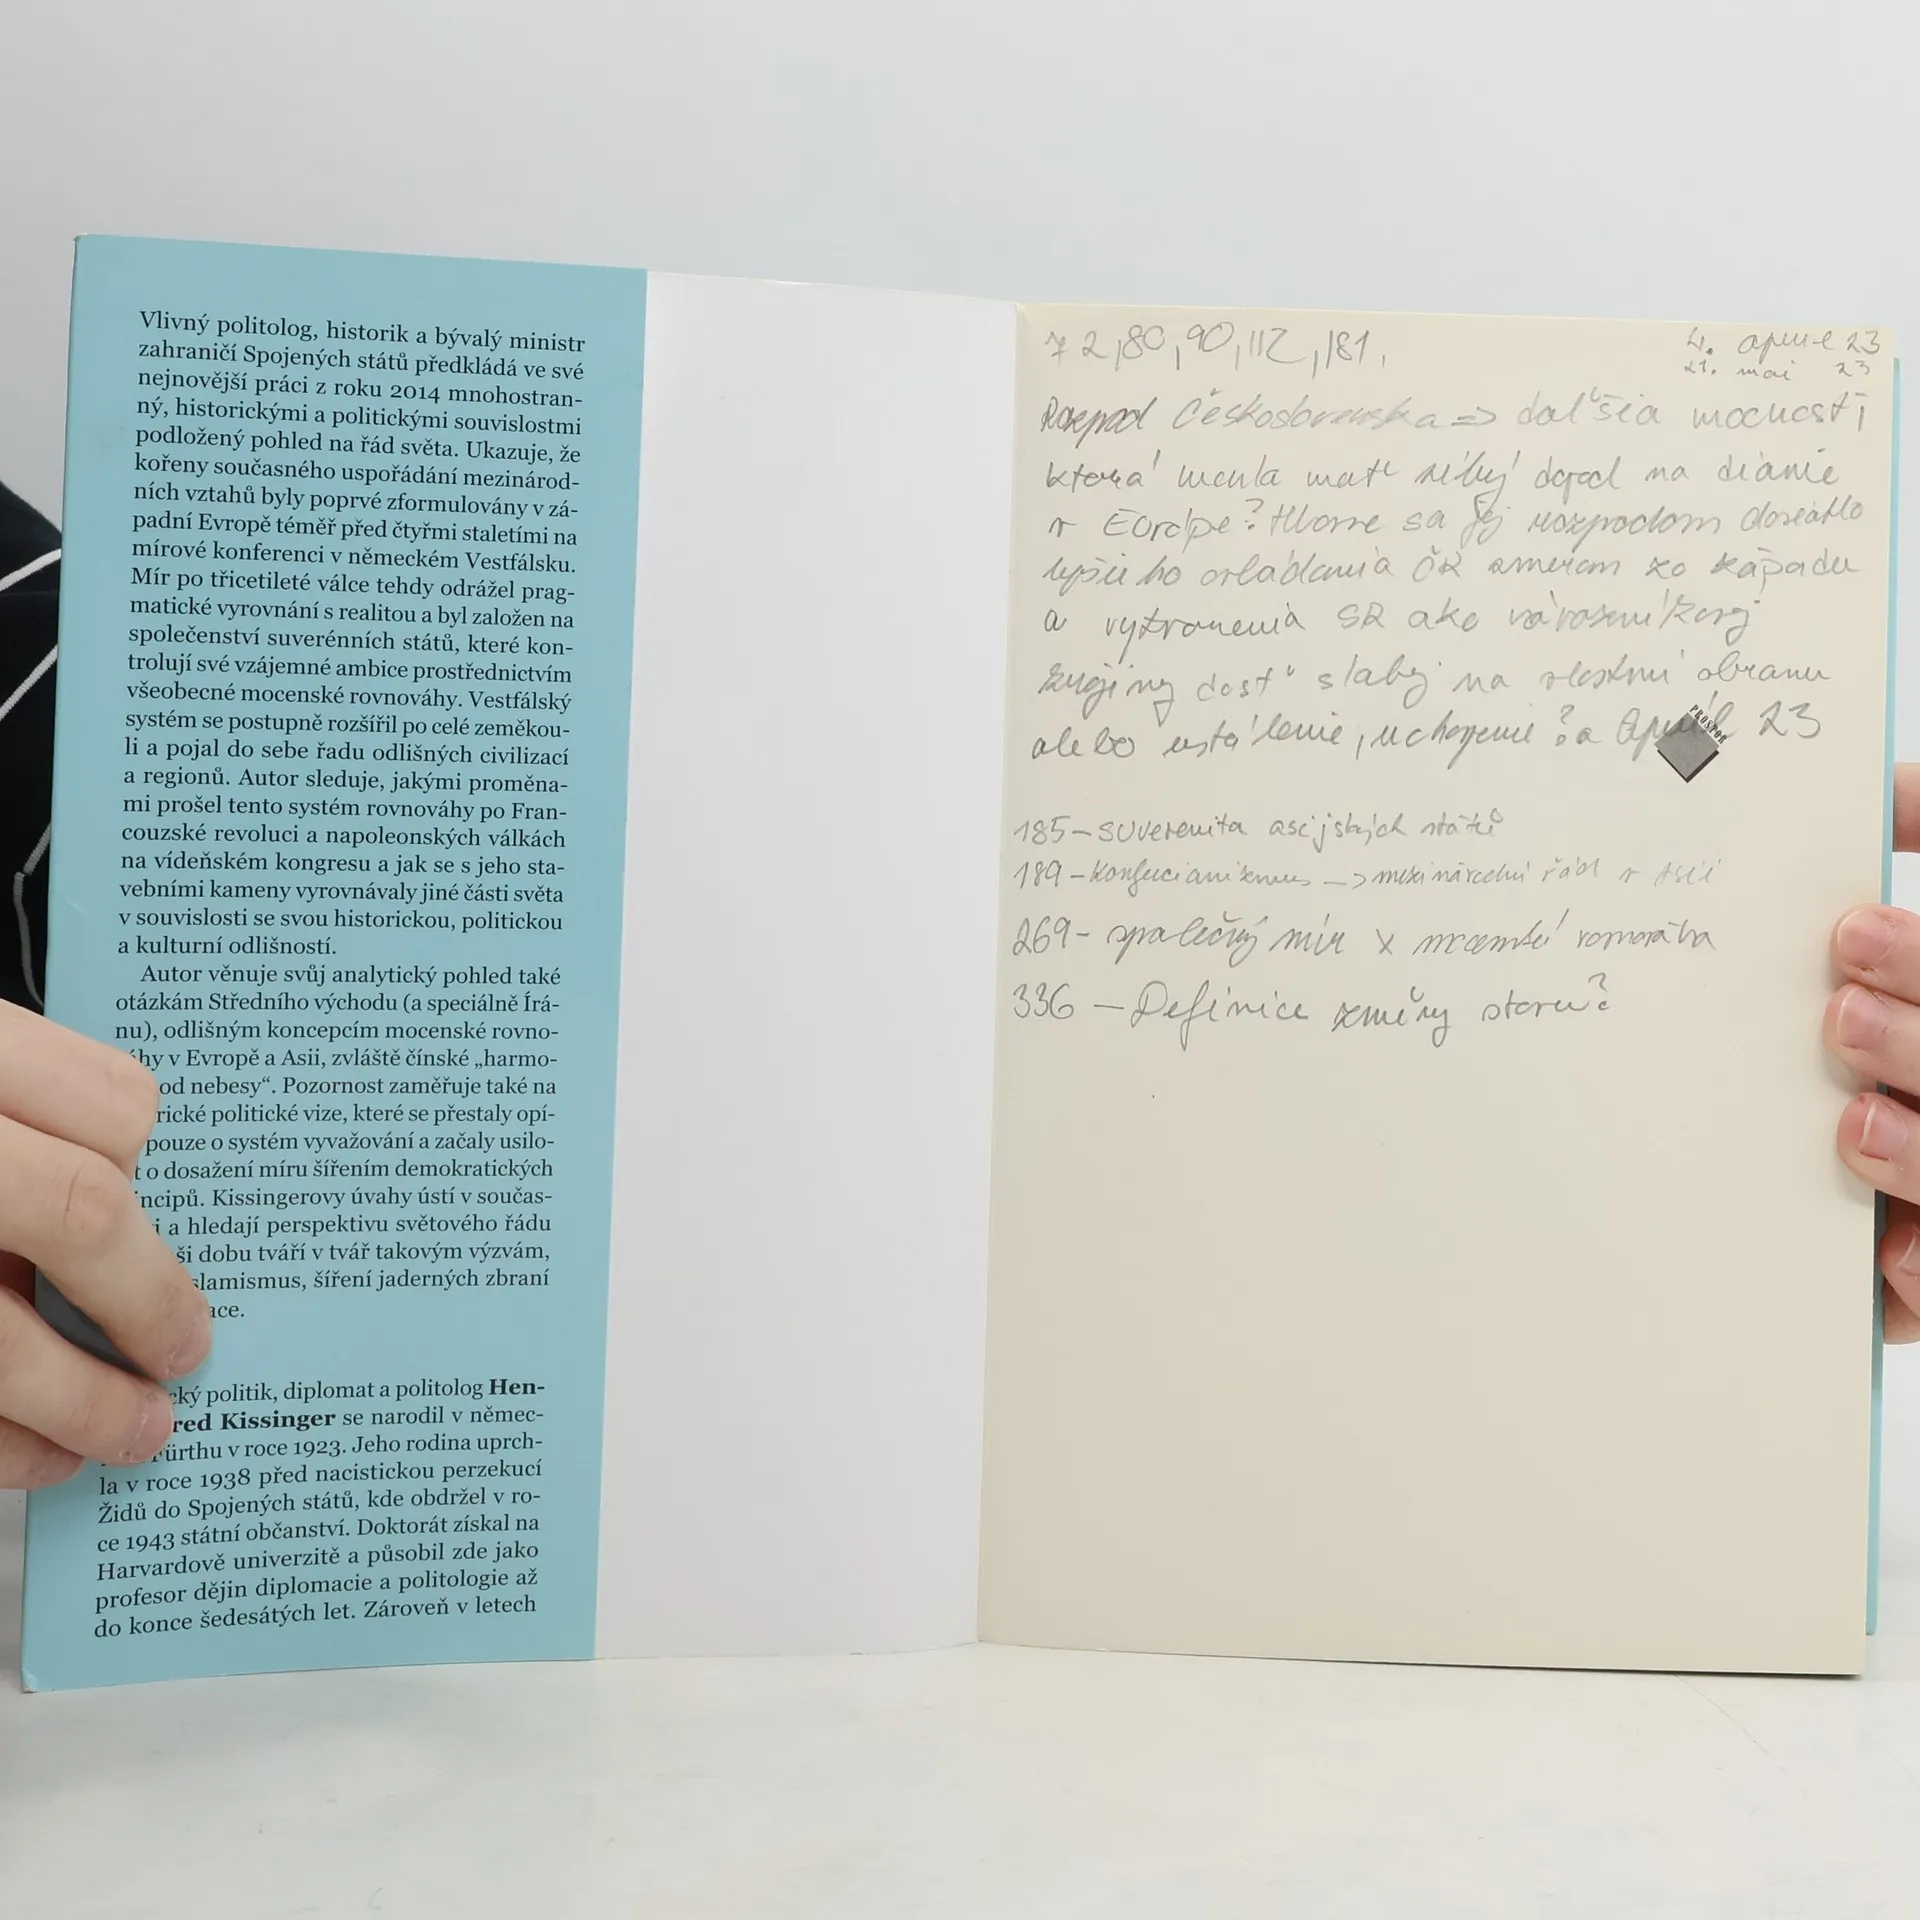 Vlivný politolog, historik a bývalý ministr
zahraničí Spojených států předkládá ve své
nejnovější práci z roku 2014 mnohostran-
ný, historickými a politickými souvislostmi
podložený pohled na řád světa. Ukazuje, že
kořeny současného uspořádání mezinárod-
ních vztahů byly poprvé zformulovány v zá-
padní Evropě téměř před čtyřmi staletími na
mírové konferenci v německém Vestfálsku.
Mír po třicetileté válce tehdy odrážel prag-
matické vyrovnání s realitou a byl založen na
společenství suverénních států, které kon-
trolují své vzájemné ambice prostřednictvím
všeobecné mocenské rovnováhy. Vestfálský
systém se postupně rozšířil po celé zeměkou-
li a pojal do sebe řadu odlišných civilizací
a regionů. Autor sleduje, jakými proměna-
mi prošel tento systém rovnováhy po Fran-
couzské revoluci a napoleonských válkách
na vídeňském kongresu a jak se s jeho sta-
vebními kameny vyrovnávaly jiné části světa
v souvislosti se svou historickou, politickou
a kulturní odlišností.
Autor věnuje svůj analytický pohled také
otázkám Středního východu (a speciálně Írá-
nu), odlišným koncepcím mocenské rovno-
áhy v Evropě a Asii, zvláště čínské „harmo-
od nebesy“. Pozornost zaměřuje také na
rické politické vize, které se přestaly opí-
pouze o systém vyvažování a začaly usilo-
t o dosažení míru šířením demokratických
incipů. Kissingerovy úvahy ústí v součas-
i a hledají perspektivu světového řádu
ši dobu tváří v tvář takovým výzvám,
slamismus, šíření jaderných zbraní
ace.
cký politik, diplomat a politolog Hen-
red Kissinger se narodil v němec-
Fürthu v roce 1923. Jeho rodina uprch-
la v roce 1938 před nacistickou perzekucí
Židů do Spojených států, kde obdržel v ro-
ce 1943 státní občanství. Doktorát získal na
Harvardově univerzitě a působil zde jako
profesor dějin diplomacie a politologie až
do konce šedesátých let. Zároveň v letech
72,80,90,112,181.
4. april 23
21. mai 23
Rozpad Československa => ďalšia mocnosti
ktorá mohla mať dopad na dianie
v Európe? Hlavne sa jej rozpadom dosiahlo
lepšieho ovládania ČR smerom zo západu
a vytvorenia SR ako
dosť slabý na vlastnú obranu
alebo ustálenie, uchopenie? a April 23
PROSTOR
185 – suverenita asijských států
189 – Konfucianizmus –> mezinárodní řád v Asii
269 – společný mír x mocenská rovnováha
336 – Definice změny stavu?